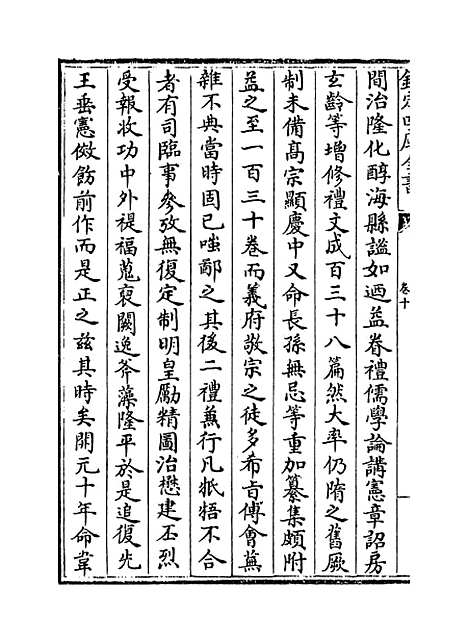 欽定四庫全書
卷十
間治隆化醇海縣謐如迺益眷禮儒學論講憲章詔房
玄齡等增修禮文成百三十八篇然大率仍隋之舊厥
制未備髙宗顯慶中又命長孫無忌等重加纂集頗附
益之至一百三十卷而義府敬宗之徒多希㫖傅會蕪
雜不典當時固已嗤鄙之其後二禮兼行凡牴牾不合
者有司臨事參攷無復定制明皇勵精圖治懋建丕烈
受報收功中外禔福蒐裒闕逸斧藻隆平於是追復先
王垂憲儆飭前作而是正之兹其時矣開元十年命韋